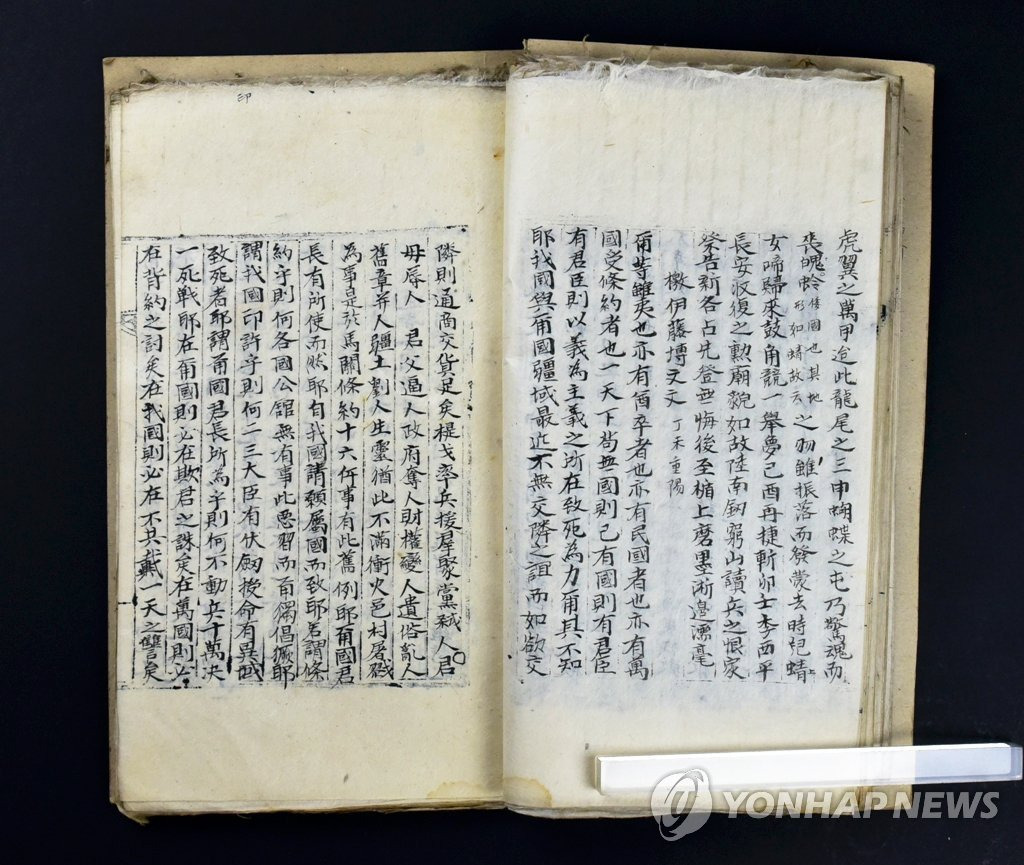 虎翼之萬甲迨此龍尾之三申蝴蝶之屯乃驚魂而
喪魄蛉 倭國也其地形如蜻故云 之羽雖振落而發蒙去時妃蜻
女啼歸來鼓角競一擧夢己酉再捷斬卯士李西平
長安收復之勲廟貌如故陸南劒窮山讀兵之恨家
祭告新各占先登無悔後至楯上磨墨淅邉濡毫
檄伊藤博文文 丁未重陽
爾等雖夷也亦有酋卒者也亦有民國者也亦有萬
國受條約者也一天下苟無國則已有國則有君臣
有君臣則以義為主義之所在致死為力爾其不知
耶我國與爾國疆域最近不無交隣之誼而如欲交
隣則通商交貨足矣提戈率兵援羣聚黨弒人君
毋辱人 君父逼人政府奪人財權變人遺俗亂人
舊章并人疆土劉人生靈猶此不滿衝火邑村屠戮
為事是於馬關條約十六件事有此舊例耶爾國君
長有所使而然耶自我國請願属國而致耶若謂條
約字則何各國公舘無有事此悪習而百獨倡獗耶
謂我國印許字則何二三大臣有伏劒授命有異域
致死者耶謂爾國君長所為字則何不動兵十萬夫
一死戰耶在爾國則必在欺君之誅矣在萬國則必
在背約之討矣在我國則必在不共戴一天之讐矣
印
YONHAP NEWS